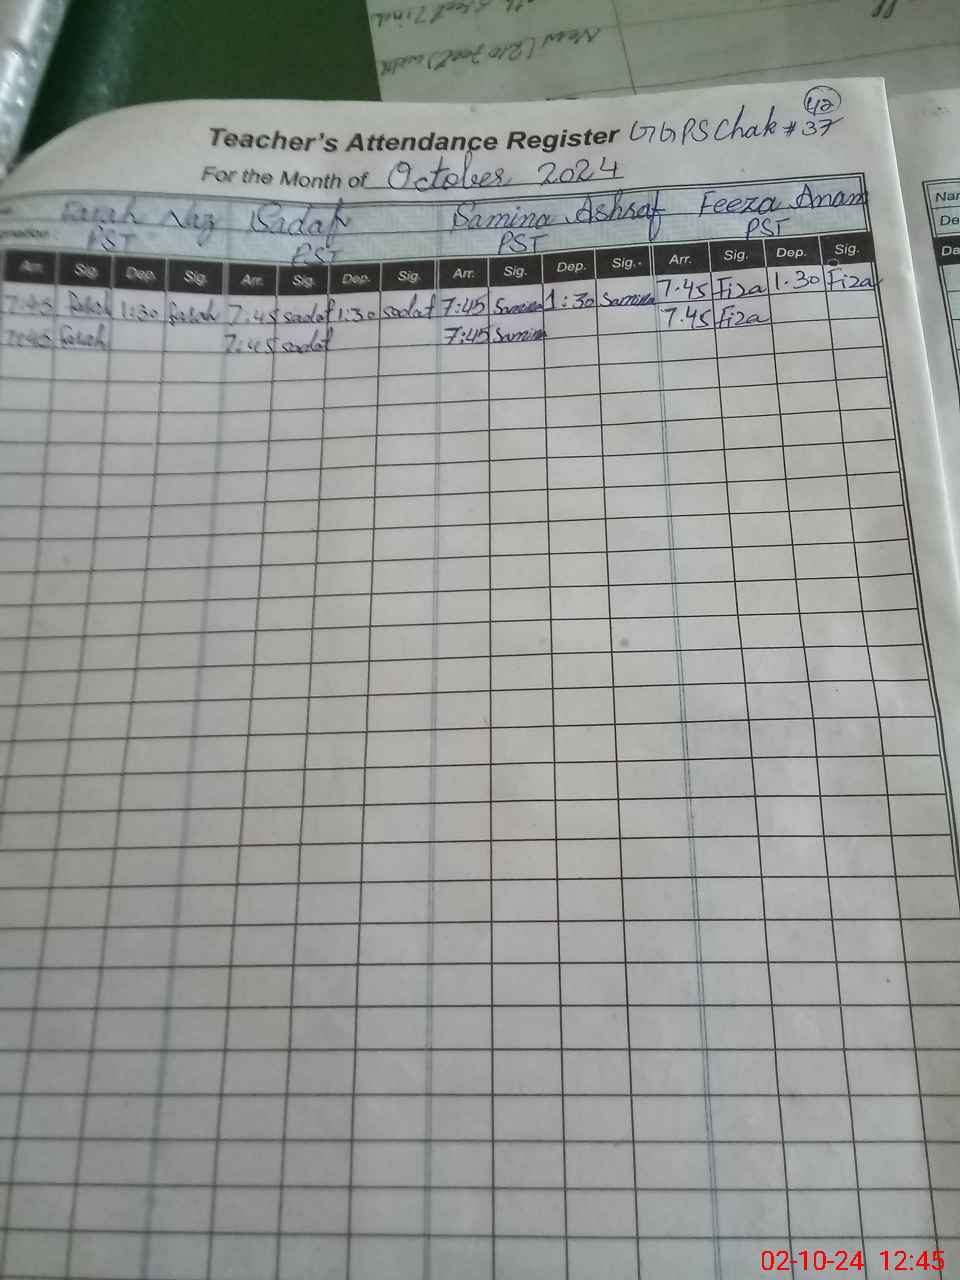 New (210 feet) with
42
Teacher's Attendance Register GGPS Chak # 37
For the Month of October 2024
Farah Naz Sadaf Samina Ashraf Feeza Anam
PST PST PST PST
Arr. Sig. Dep. Sig. Arr. Sig. Dep. Sig. Arr. Sig. Dep. Sig. Arr. Sig. Dep. Sig.
7:45 Farah 1:30 Farah 7.45 sadaf 1:30 sadaf 7:45 Samina 1:30 Samina 7.45 Fiza 1.30 Fiza
7:45 Farah 7:45 sadaf 7:45 Samina 7.45 Fiza
Nar
De
De
02-10-24 12:45